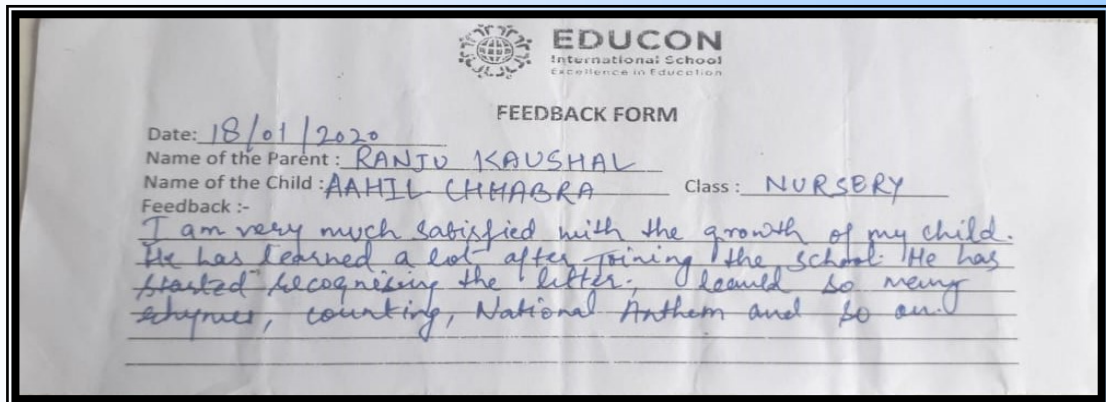 EDUCON
International School
Excellence in Education
FEEDBACK FORM
Date: 18/01/2020
Name of the Parent : RANJU KAUSHAL
Name of the Child : AAHIL CHHABRA Class : NURSERY
Feedback :-
I am very much satisfied with the growth of my child.
He has learned a lot after joining the school. He has
started recognising the letter, leaund so meny
rhymes, counting, National Anthem and so on.